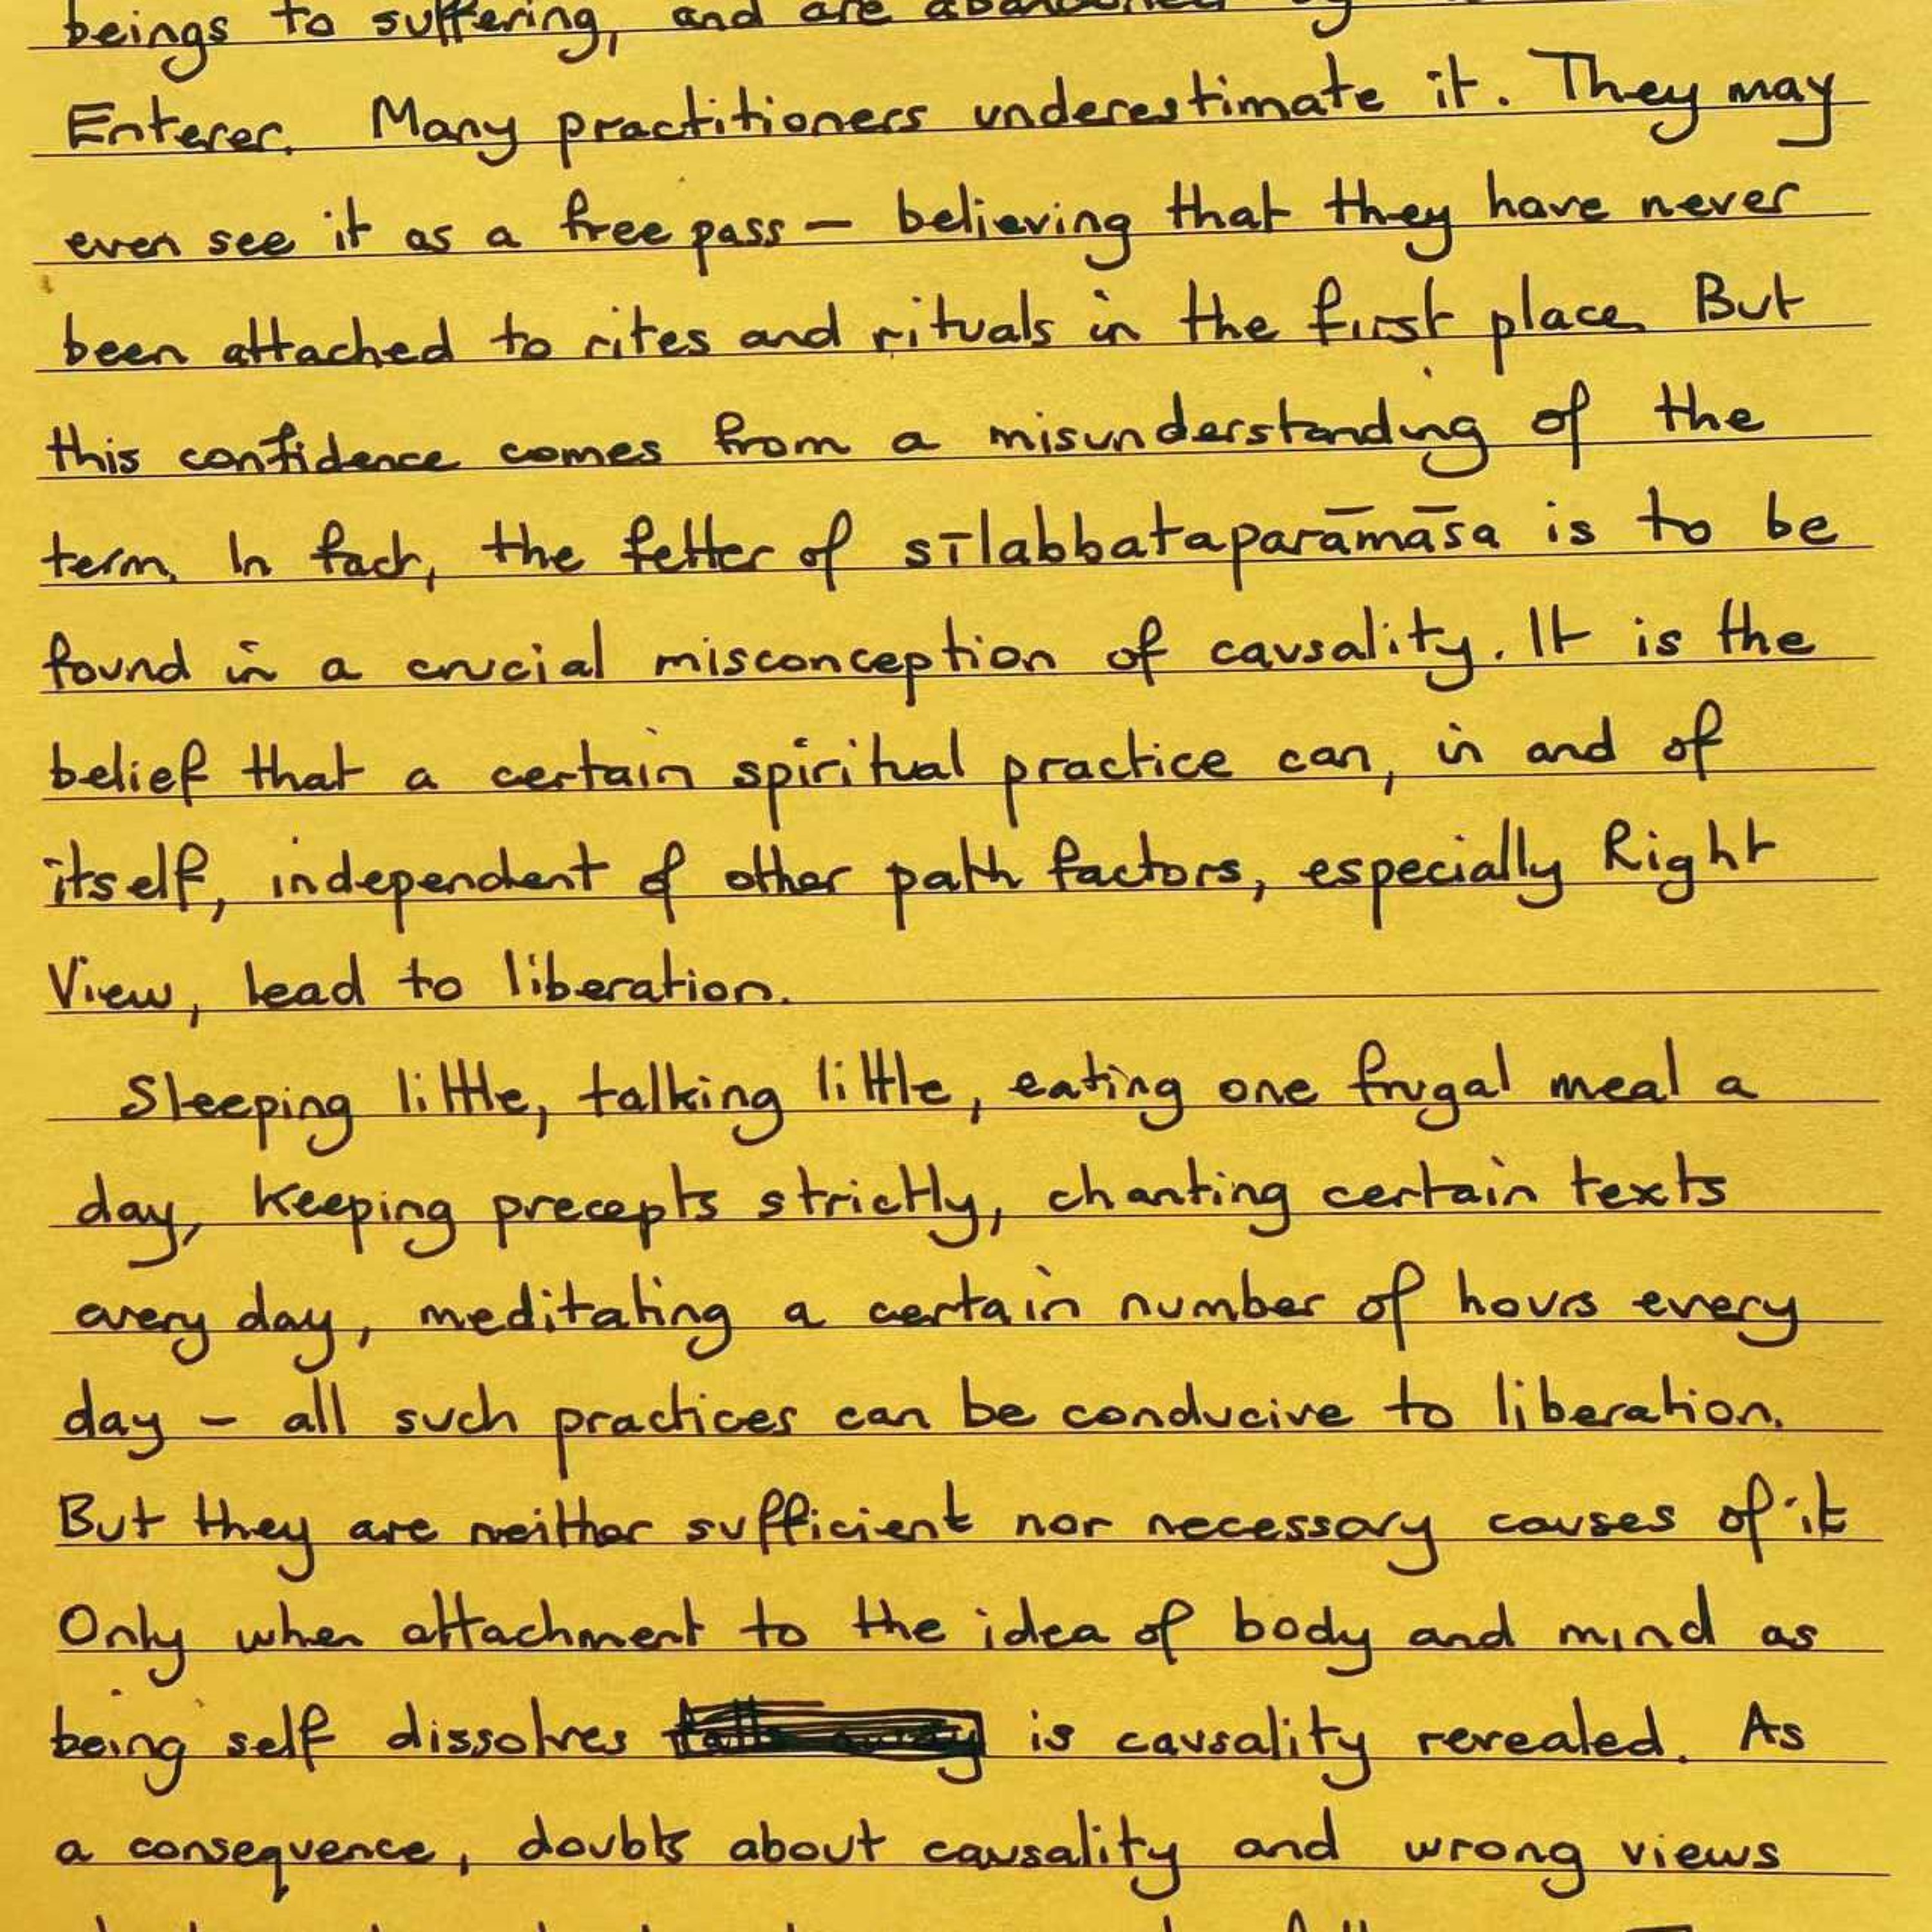 beings to suffering, and are abandoned by
Enterer. Many practitioners underestimate it. They may
even see it as a free pass – believing that they have never
been attached to rites and rituals in the first place. But
this confidence comes from a misunderstanding of the
term. In fact, the fetter of sīlabbataparāmāsa is to be
found in a crucial misconception of causality. It is the
belief that a certain spiritual practice can, in and of
itself, independent of other path factors, especially Right
View, lead to liberation.
Sleeping little, talking little, eating one frugal meal a
day, keeping precepts strictly, chanting certain texts
every day, meditating a certain number of hours every
day – all such practices can be conducive to liberation.
But they are neither sufficient nor necessary causes of it
Only when attachment to the idea of body and mind as
being self dissolves is causality revealed. As
a consequence, doubts about causality and wrong views